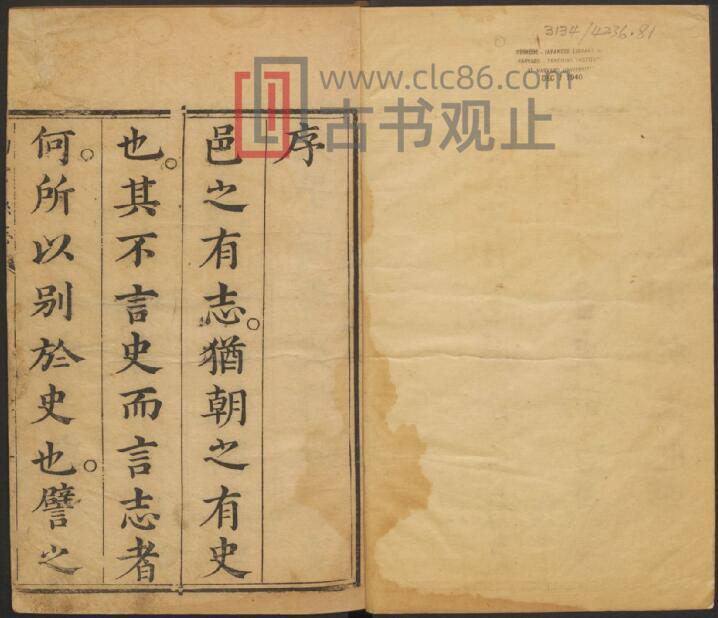 序
邑之有志。猶朝之有史
也。其不言史而言志者
何。所以别於史也。譬之
3134/4236.81
CHINESE-JAPANESE LIBRARY
HARVARD-YENCHING INSTITUTE
AT HARVARD UNIVERSITY
DEC 1940
www.clc86.com
古书观止